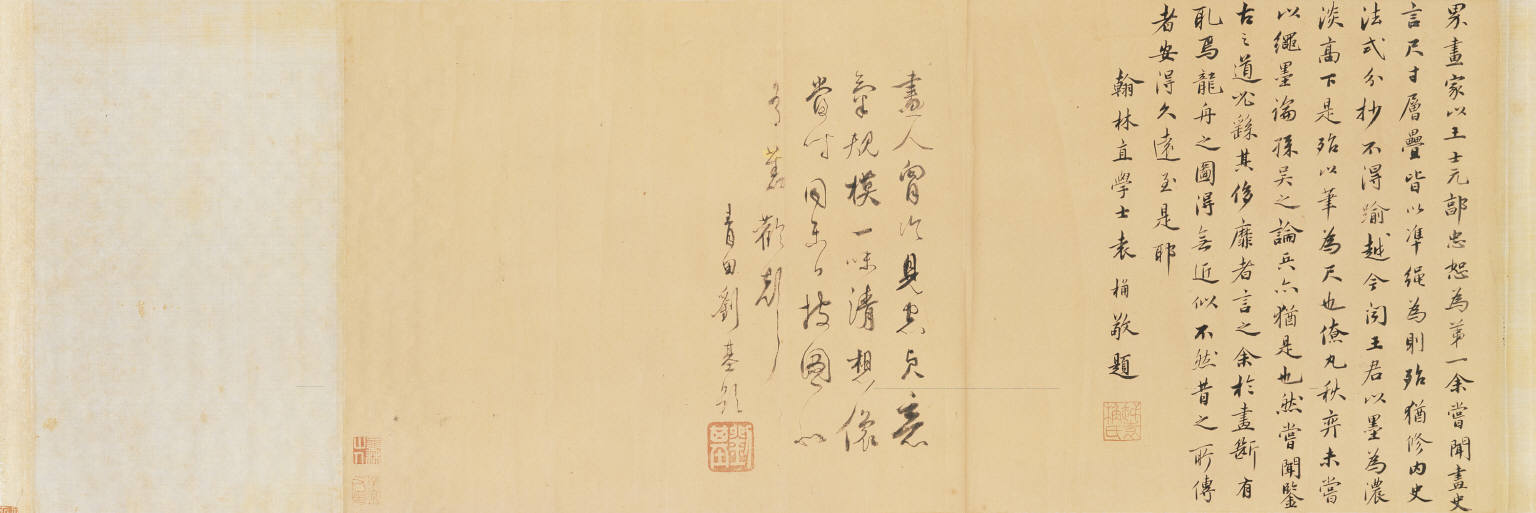 界畫家以王士元郭忠恕為第一余嘗聞畫史
言尺寸層疊皆以準繩為則殆猶修內史
法式分秒不得踰越今聞王君以墨為濃
淡高下是殆以筆為尺也僚丸秋弈未嘗
以繩墨論孫吳之論兵亦猶是也然嘗聞鑒
古之道必繇其侈靡者言之余於畫斷有
取焉龍舟之圖得無近似不然昔之所傳
者安得久遠至是耶
翰林直學士袁桷敬題
畫人胷次見忠貞意
氣規模一味清想像
當時同樂日披圖以
青田劉基題